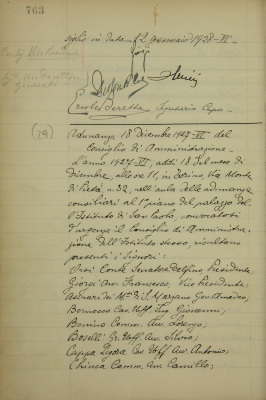 763
siglio in data 12 gennaio 1928-VI-
Il Vice Presidente
Il Direttore
Generale
Ercole Beretta Segretario Capo-
(29)
Adunanza 18 Dicembre 1927-VI- del
Consiglio di Amministrazione-
L'anno 1927-VI-, addì 18 del mese di
Dicembre, alle ore 11, in Torino, Via Monte
di Pietà n. 32, nell'aula delle adunanze
consigliari al 1° piano del palazzo del-
l'Istituto di San Paolo, convocatosi
d'urgenza il Consiglio di Amministra-
zione dell'Istituto stesso, risultano
presenti i Signori:
Orsi Conte Senatore Delfino, Presidente;
Giorgi Avv. Francesco, Vice Presidente;
Asinari dei M.si di S. Marzano Gen. Amedeo;
Bernocco Cav. Uff. Ing. Giovanni;
Bonino Comm. Avv. Lorenzo;
Boselli Gr. Uff. Avv. Silvio;
Cappa Legora Cav. Uff. Avv. Antonio;
Chinea Comm. Avv. Camillo;